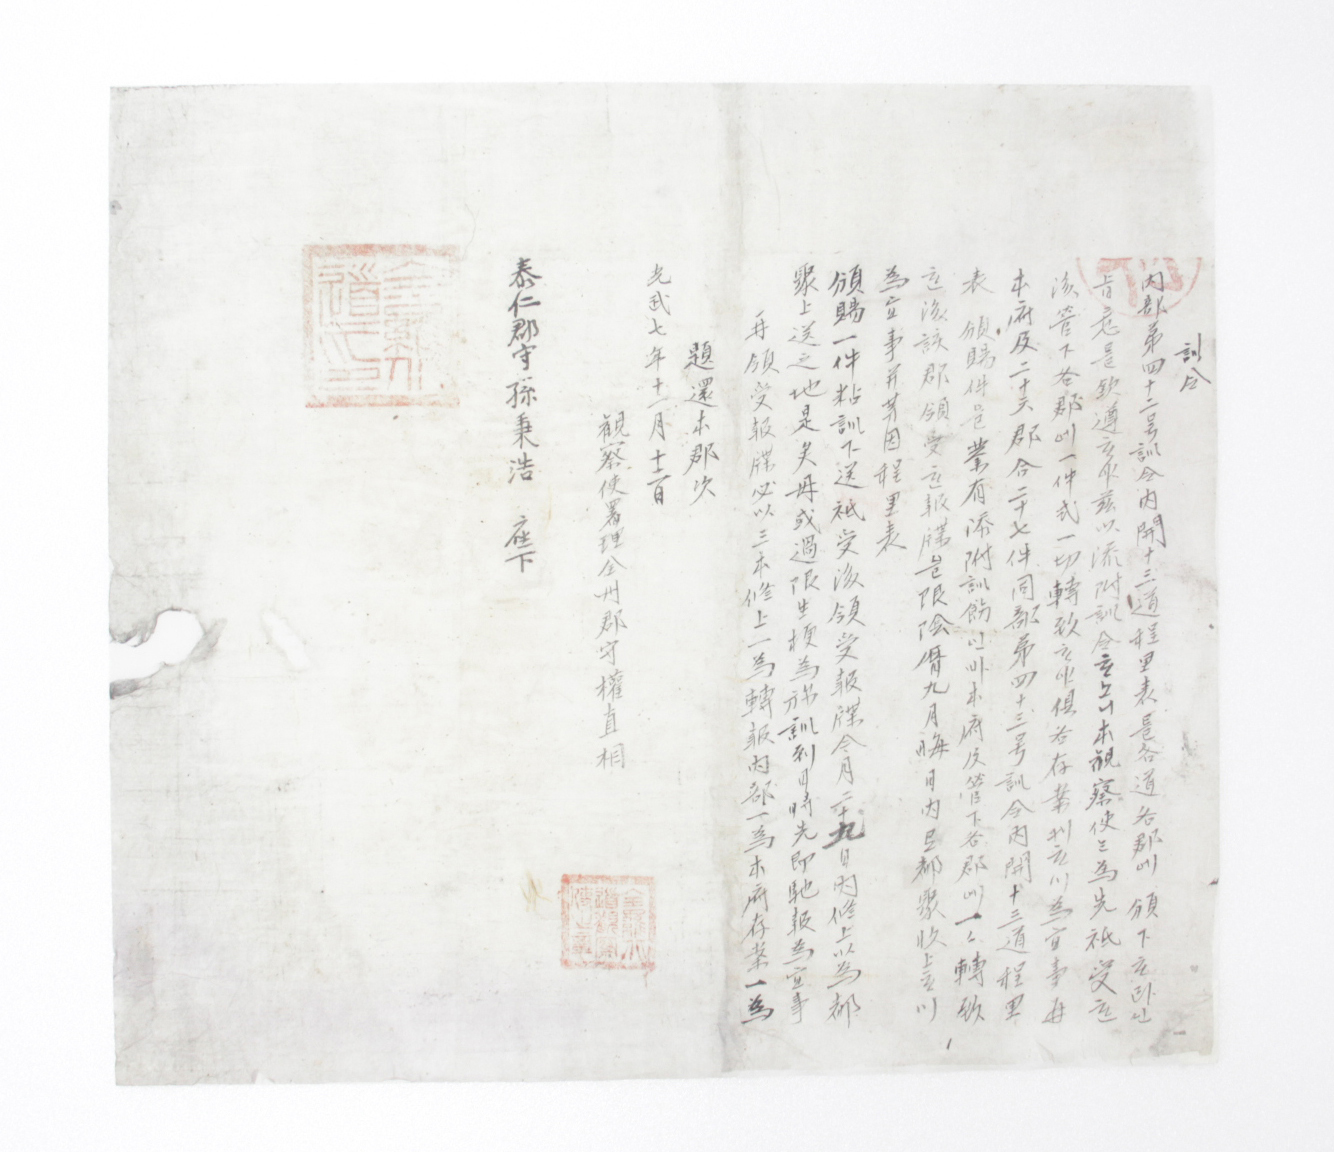 訓令
內部第四十二号訓令內開十三道程里表是各道各郡에 頒下
旨意是欽遵 玆以添附訓令 本觀察使 為先祗受
後管下各郡에一件式一切轉致 俱各存案 為宜事再
本府及二十六郡合二十七件同部第四十三号訓令內開十三道程里
表 頒賜件 業有添附訓飭 本府及管下各郡에 一々轉致
後該郡領受 報牒 限陰曆九月晦日內 都聚收上
為宜事 等因程里表
頒賜一件粘訓下送祗受後領受報牒令月二十九日內修上以為都
聚上送之地是矣毋或過限生梗為於訓到日時先即馳報為宜事
再領受報牒必以三本修上一為轉報內部一為本府存案一為
題還本郡次
光武七年十一月十二日
觀察使署理全州郡守權直相
泰仁郡守孫秉浩 座下